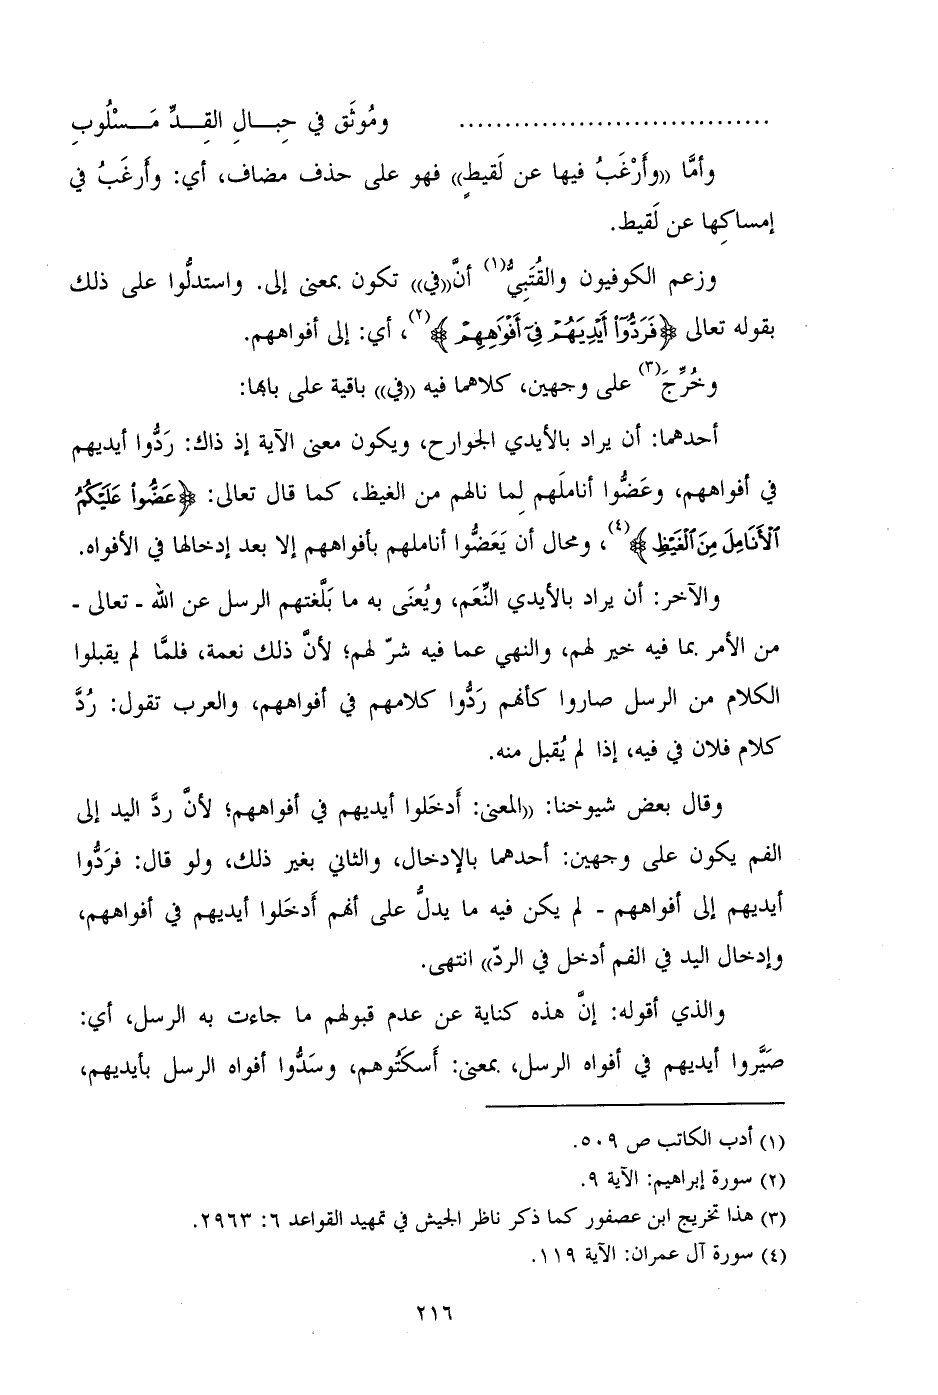 ................................ ومُوثَق في حِبــالِ القِــدِّ مَــسْلُوبِ
وأمَّا ((وأَرْغَبُ فيها عن لَقيطٍ)) فهو على حذف مضاف، أي: وأَرغَبُ في
إمساكِها عن لَقيط.
وزعم الكوفيون والقُتَبِيُّ(١) أنَّ ((في)) تكون بمعنى إلى. واستدلُّوا على ذلك
بقوله تعالى ﴿فَرَدُّوٓاْ أَيْدِيَهُمْ فِىٓ أَفْوَٰهِهِمْ﴾(٢)، أي: إلى أفواههم.
وخُرِّجَ(٣) على وجهين، كلاهما فيه ((في)) باقية على بابها:
أحدهما: أن يراد بالأيدي الجوارح، ويكون معنى الآية إذ ذاك: رَدُّوا أيديهم
في أفواههم، وعَضُّوا أناملَهم لِما نالهم من الغيظ، كما قال تعالى: ﴿عَضُّواْ عَلَيْكُمُ
ٱلْأَنَامِلَ مِنَ ٱلْغَيْظِ﴾(٤)، ومحال أن يَعَضُّوا أناملهم بأفواههم إلا بعد إدخالها في الأفواه.
والآخر: أن يراد بالأيدي النِّعَم، ويُعنَى به ما بَلَّغتهم الرسل عن الله - تعالى -
من الأمر بما فيه خير لهم، والنهي عما فيه شرّ لهم؛ لأنَّ ذلك نعمة، فلمَّا لم يقبلوا
الكلام من الرسل صاروا كأنهم رَدُّوا كلامهم في أفواههم، والعرب تقول: رُدَّ
كلام فلان في فيه، إذا لم يُقبل منه.
وقال بعض شيوخنا: ((المعنى: أَدخَلوا أيديهم في أفواههم؛ لأنَّ ردَّ اليد إلى
الفم يكون على وجهين: أحدهما بالإدخال، والثاني بغير ذلك، ولو قال: فرَدُّوا
أيديهم إلى أفواههم - لم يكن فيه ما يدلُّ على أنهم أَدخَلوا أيديهم في أفواههم،
وإدخال اليد في الفم أدخل في الردّ)) انتهى.
والذي أقوله: إنَّ هذه كناية عن عدم قبولهم ما جاءت به الرسل، أي:
صَيَّروا أيديهم في أفواه الرسل، بمعنى: أَسكَتُوهم، وسَدُّوا أفواه الرسل بأيديهم،
(١) أدب الكاتب ص ٥٠٩.
(٢) سورة إبراهيم: الآية ٩.
(٣) هذا تخريج ابن عصفور كما ذكر ناظر الجيش في تمهيد القواعد ٦: ٢٩٦٣.
(٤) سورة آل عمران: الآية ١١٩.
٢١٦